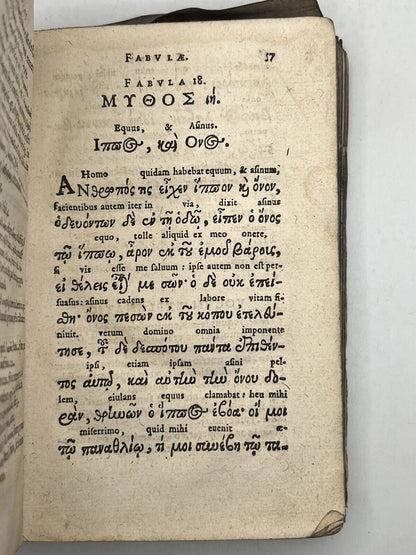 FABULÆ. 57
FABULA 18.
ΜΥΘΟΣ ιή.
Equus, & Asinus.
Ιππος, καὶ Ονος.
Homo quidam habebat equum, & asinum,
ΑΝθρωπός τις εἶχεν ἵππον καὶ ὄνον,
facientibus autem iter in via, dixit asinus
ὁδευόντων δὲ ἐν τῇ ὁδῷ, εἶπεν ὁ ὄνος
equo, tolle aliquid ex meo onere,
τῷ ἵππῳ, ἆρον ἐκ τοῦ ἐμοῦ βάρους,
si vis esse me salvum: ipse autem non est per-
εἰ θέλεις εἶναί με σῶν· ὁ δὲ οὐκ ἐπεί-
suasus: asinus cadens ex labore vitam fi-
θη· ὄνος πεσὼν ἐκ τοῦ κόπου ἐτελεύ-
niuit. verum domino omnia imponente
τησε, τοῦ δὲ δεσπότου πάντα ἐπιθέν-
ipsi, etiam ipsam asini pel-
τος αὐτῷ, καὶ αὐτὴν τὴν ὄνου δο-
lem, eiulans equus clamabat: heu mihi
ρὰν, θρηνῶν ὁ ἵππος ἐβόα· οἴ μοι
miserrimo, quid mihi euenit æ-
τῷ παναθλίῳ, τί μοι συνέβη τῷ τα-